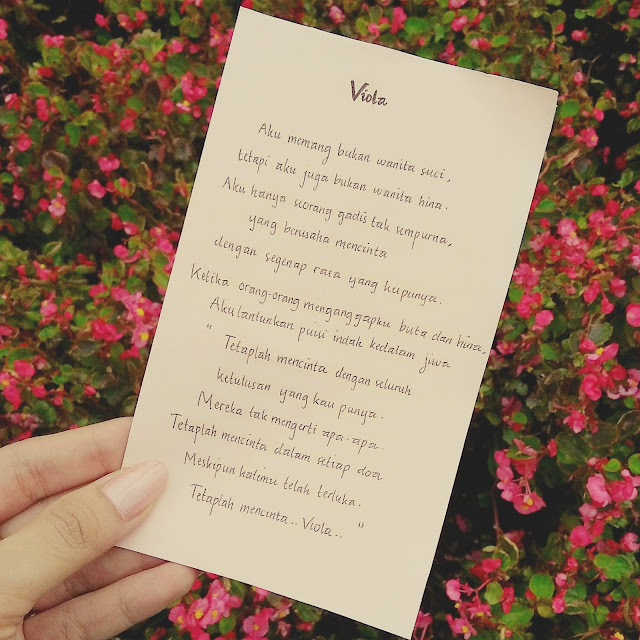 Viola
Aku memang bukan wanita suci,
tetapi aku juga bukan wanita hina.
Aku hanya seorang gadis tak sempurna,
yang berusaha mencinta
dengan segenap rasa yang kupunya.
Ketika orang-orang menganggapku buta dan hina,
Aku lantunkan puisi indah kedalam jiwa
" Tetaplah mencinta dengan seluruh
ketulusan yang kau punya.
Mereka tak mengerti apa-apa.
Tetaplah mencinta dalam setiap doa
Meskipun hatimu telah terluka.
Tetaplah mencinta.. Viola.. "